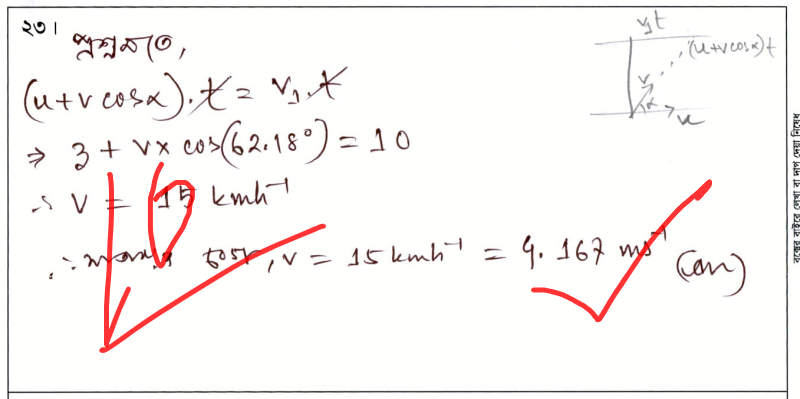 ২৩।
প্রশ্নমতে,
(u+v cosα).t = v₁.t
⇒ 3 + v× cos(62.18°) = 10
∴ v = 15 kmh⁻¹
∴ v = 15 kmh⁻¹ = 4.167 ms⁻¹ (Ans)
10
v₁t
(u+vcosα)t
v
α
u
বক্সের বাইরে লেখা বা দাগ দেয়া নিষেধ